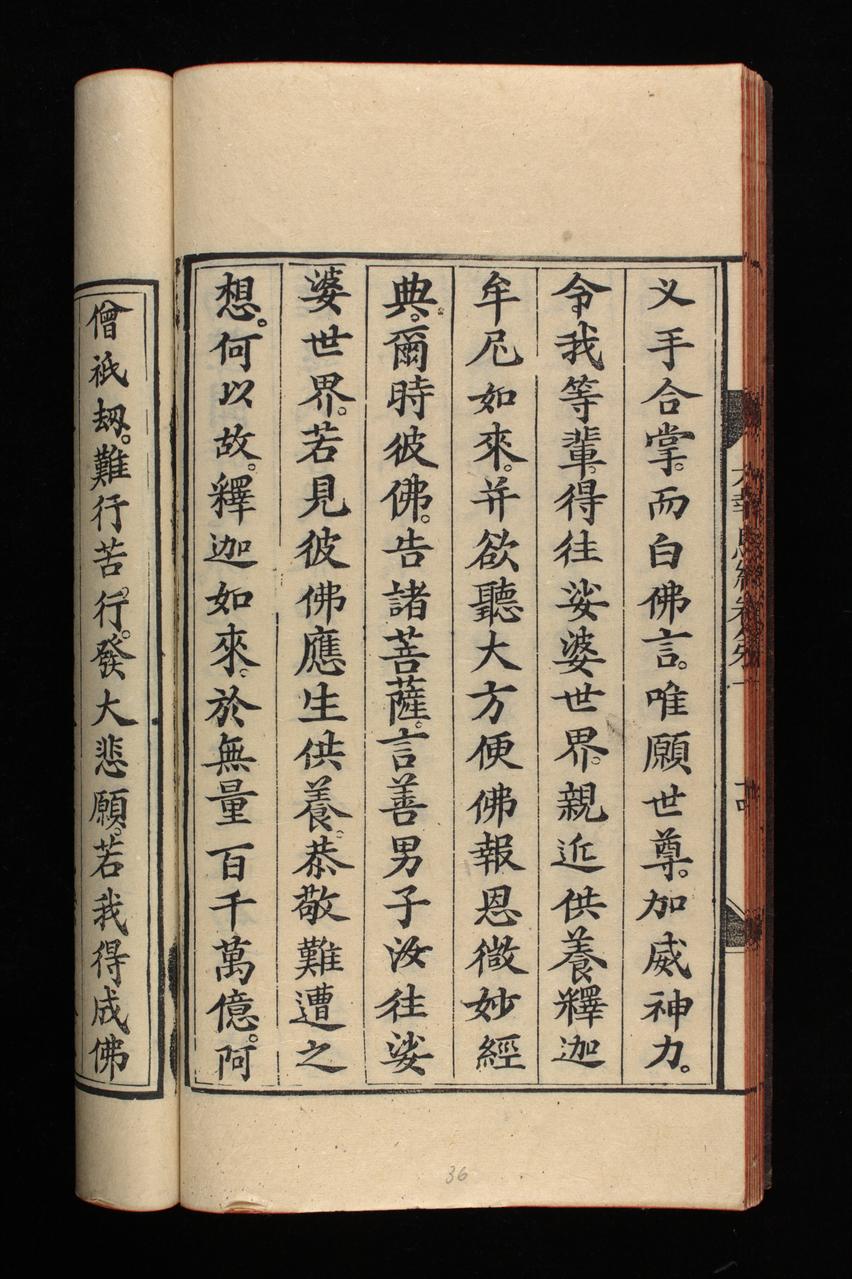 大報恩經卷第一
叉手合掌。而白佛言。唯願世尊。加威神力。
令我等輩。得往娑婆世界。親近供養釋迦
牟尼如來。并欲聽大方便佛報恩微妙經
典。爾時彼佛。告諸菩薩。言善男子汝往娑
婆世界。若見彼佛應生供養。恭敬難遭之
想。何以故。釋迦如來。於無量百千萬億。阿
僧祇劫。難行苦行。發大悲願。若我得成佛
36